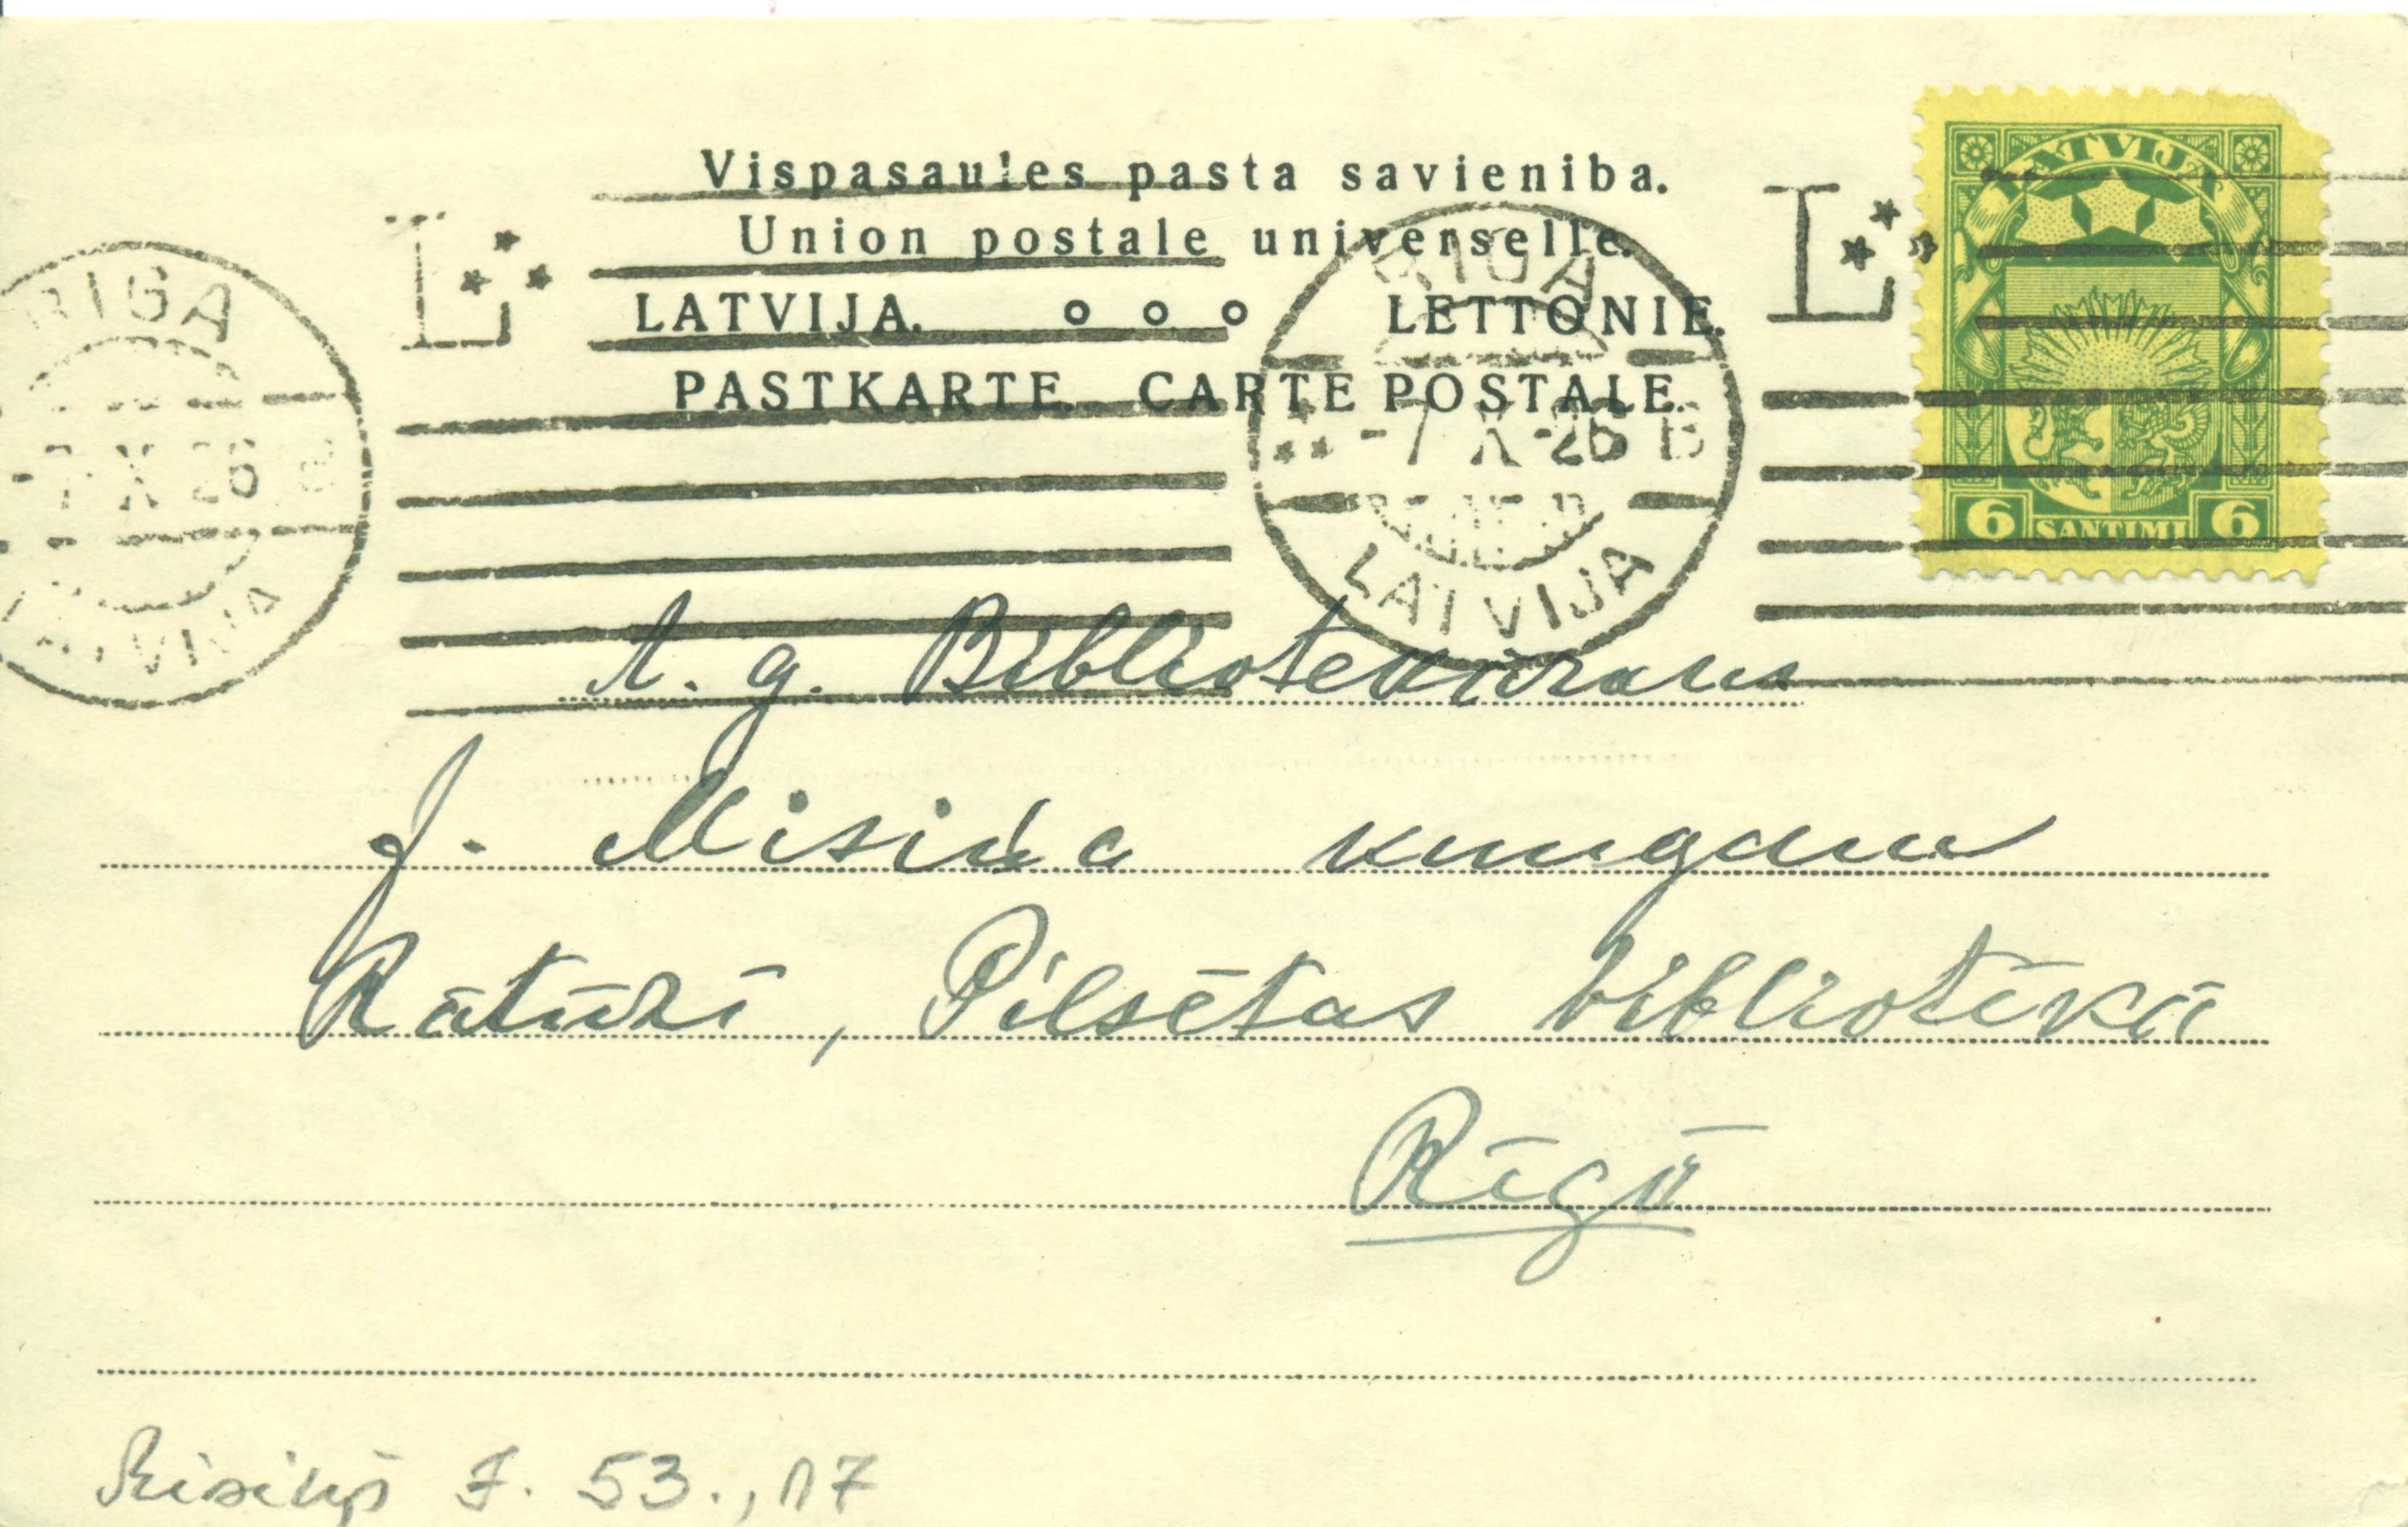 Vispasaules pasta savieniba.
Union postale universelle.
LATVIJA. LETTONIE.
PASTKARTE. CARTE POSTALE.
RIGA
LATVIJA
RIGA
-7 X 26 B
LATVIJA
L
L
LATVIJA
6 SANTIMI 6
A. g. Bibliotekāram
J. Misiņa kungam
Rātūzī, Pilsētas bibliotēkā
Rīgā
Misiņš J. 53., 17